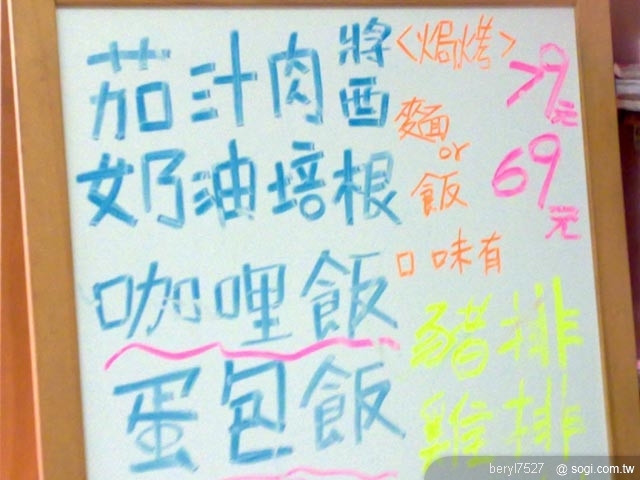 茄汁肉醬 <焗烤> 79元
西
奶油培根 麵or飯 69元
咖哩飯 口味有
豬排
蛋包飯 雞排
beryl7527 @ sogi.com.tw